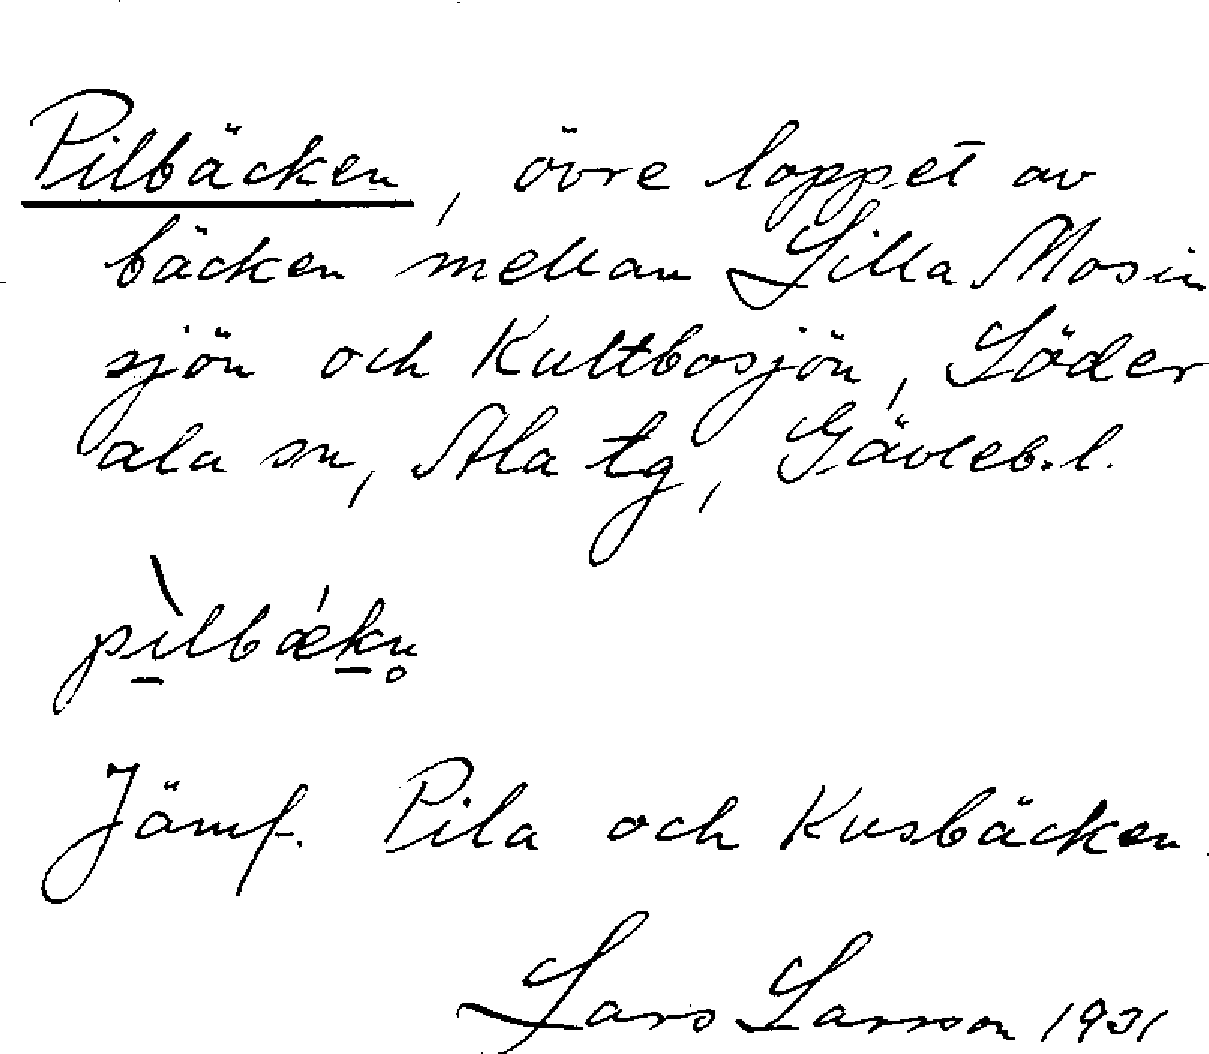 Pilbäcken, övre loppet av
bäcken mellan Lilla Mosin
sjön och Kultbosjön, Söder
ala sn, Ala tg, Gävleb.l.
pìlbǽkn̥
Jämf. Pila och Kusbäcken.
Lars Larsson 1931